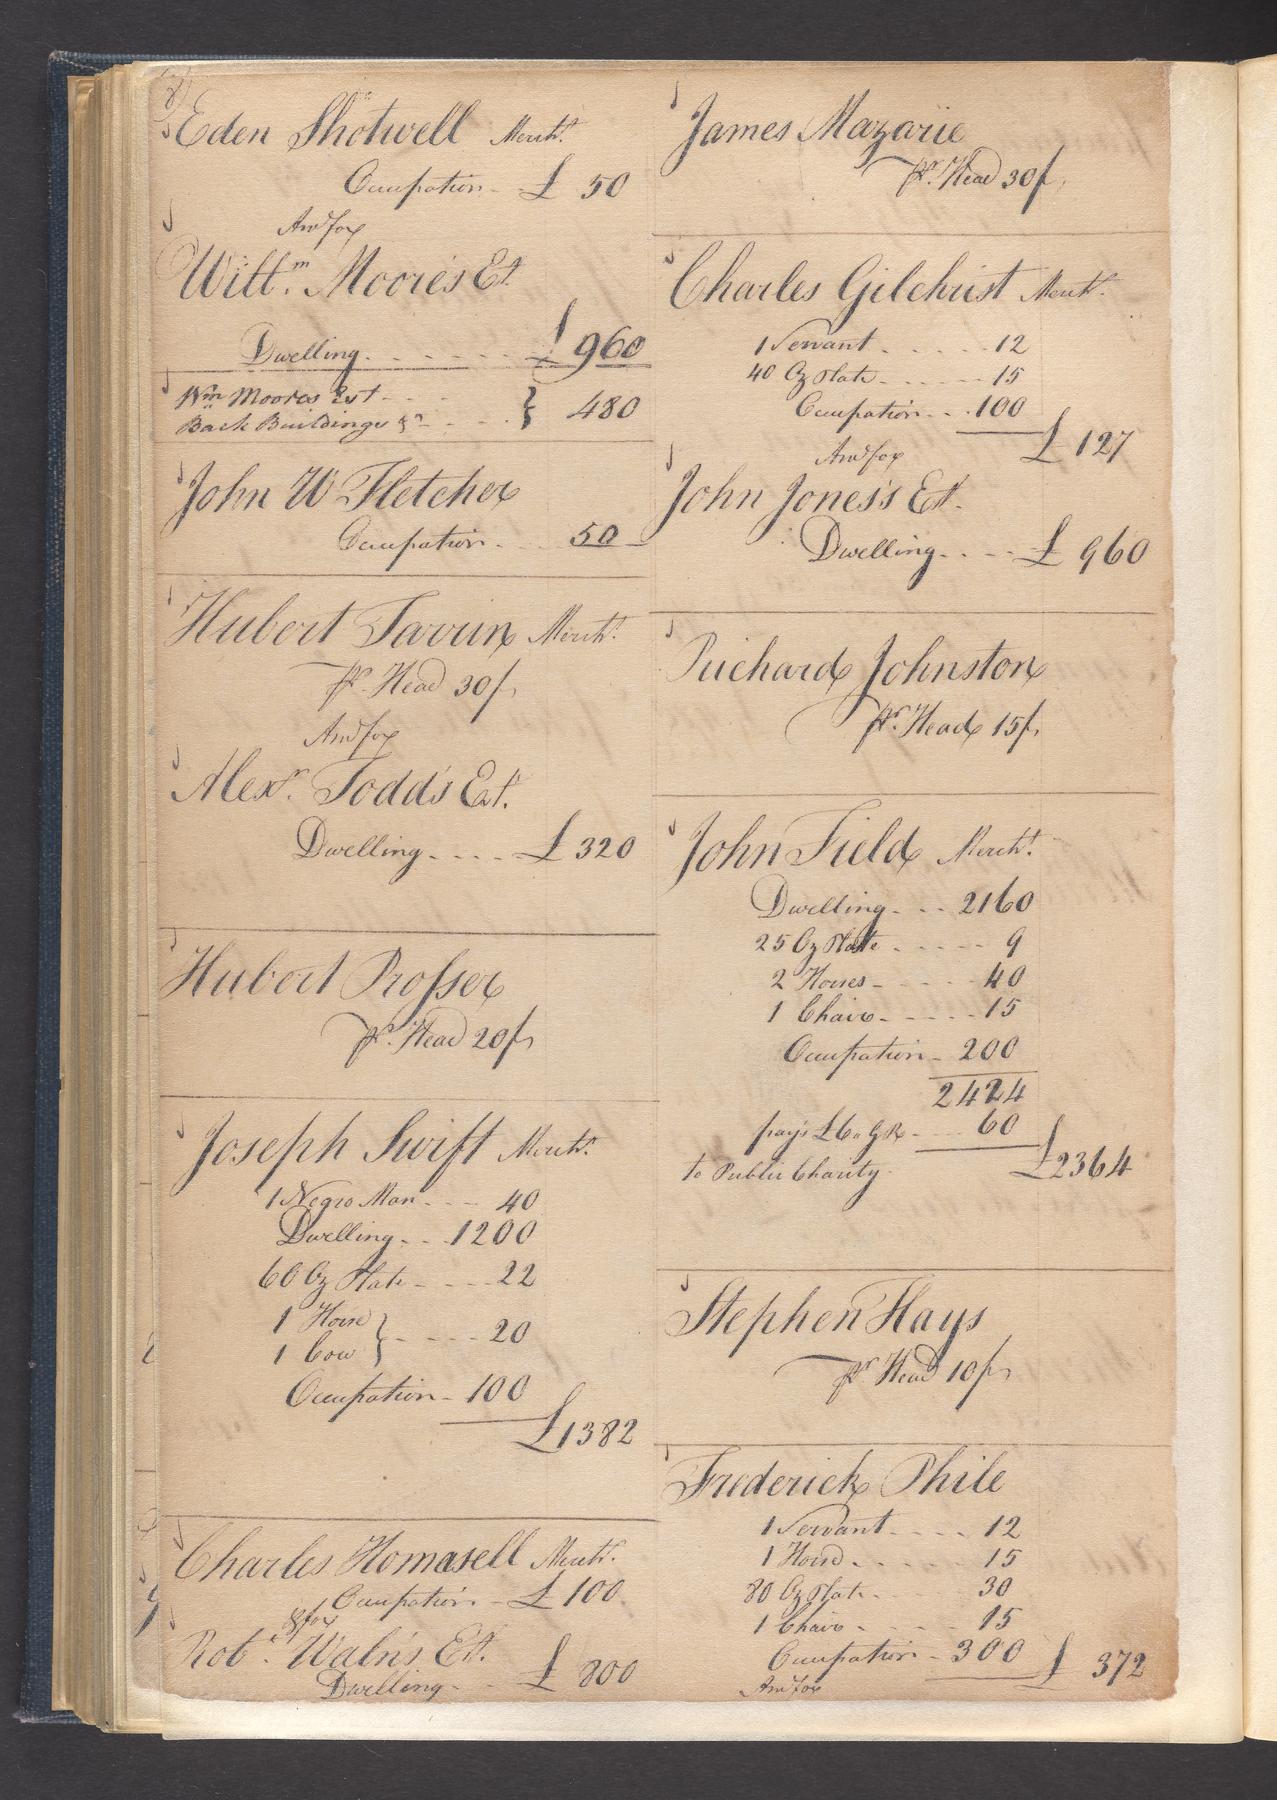 Eden Shotwell Mercht.
Occupation - £ 50
And for
Willm. Moore's Est.
Dwelling - £ 960
Wm Moores Est
Back Buildings &c } 480
John W Fletcher
Occupation - 50
Hubert Tarrin Mercht.
pr. Head 30/
And for
Alexr. Todd's Est.
Dwelling - £ 320
Hubert Prosser
pr. Head 20/
Joseph Swift Mercht.
1 Negro Man - 40
Dwelling - 1200
60 Oz Plate - 22
1 Horse
1 Cow } - 20
Occupation - 100
£1382
Charles Homasell Mercht.
Occupation - £ 100
& for
Robt. Waln's Est.
Dwelling - £ 800
James Mazarie
pr. Head 30/
Charles Gilchrist Mercht.
1 Servant - 12
40 Oz Plate - 15
Occupation - 100
£ 127
And for
John Jones's Est.
Dwelling - £ 960
Richard Johnston
pr. Head 15/
John Field Mercht.
Dwelling - 2160
25 Oz Plate - 9
2 Horses - 40
1 Chair - 15
Occupation - 200
2424
pays £6 " G R - 60
to Public Charity £2364
Stephen Hays
pr Head 10/
Frederick Phile
1 Servant - 12
1 Horse - 15
80 Oz Plate - 30
1 Chair - 15
Occupation - 300 £ 372
And for